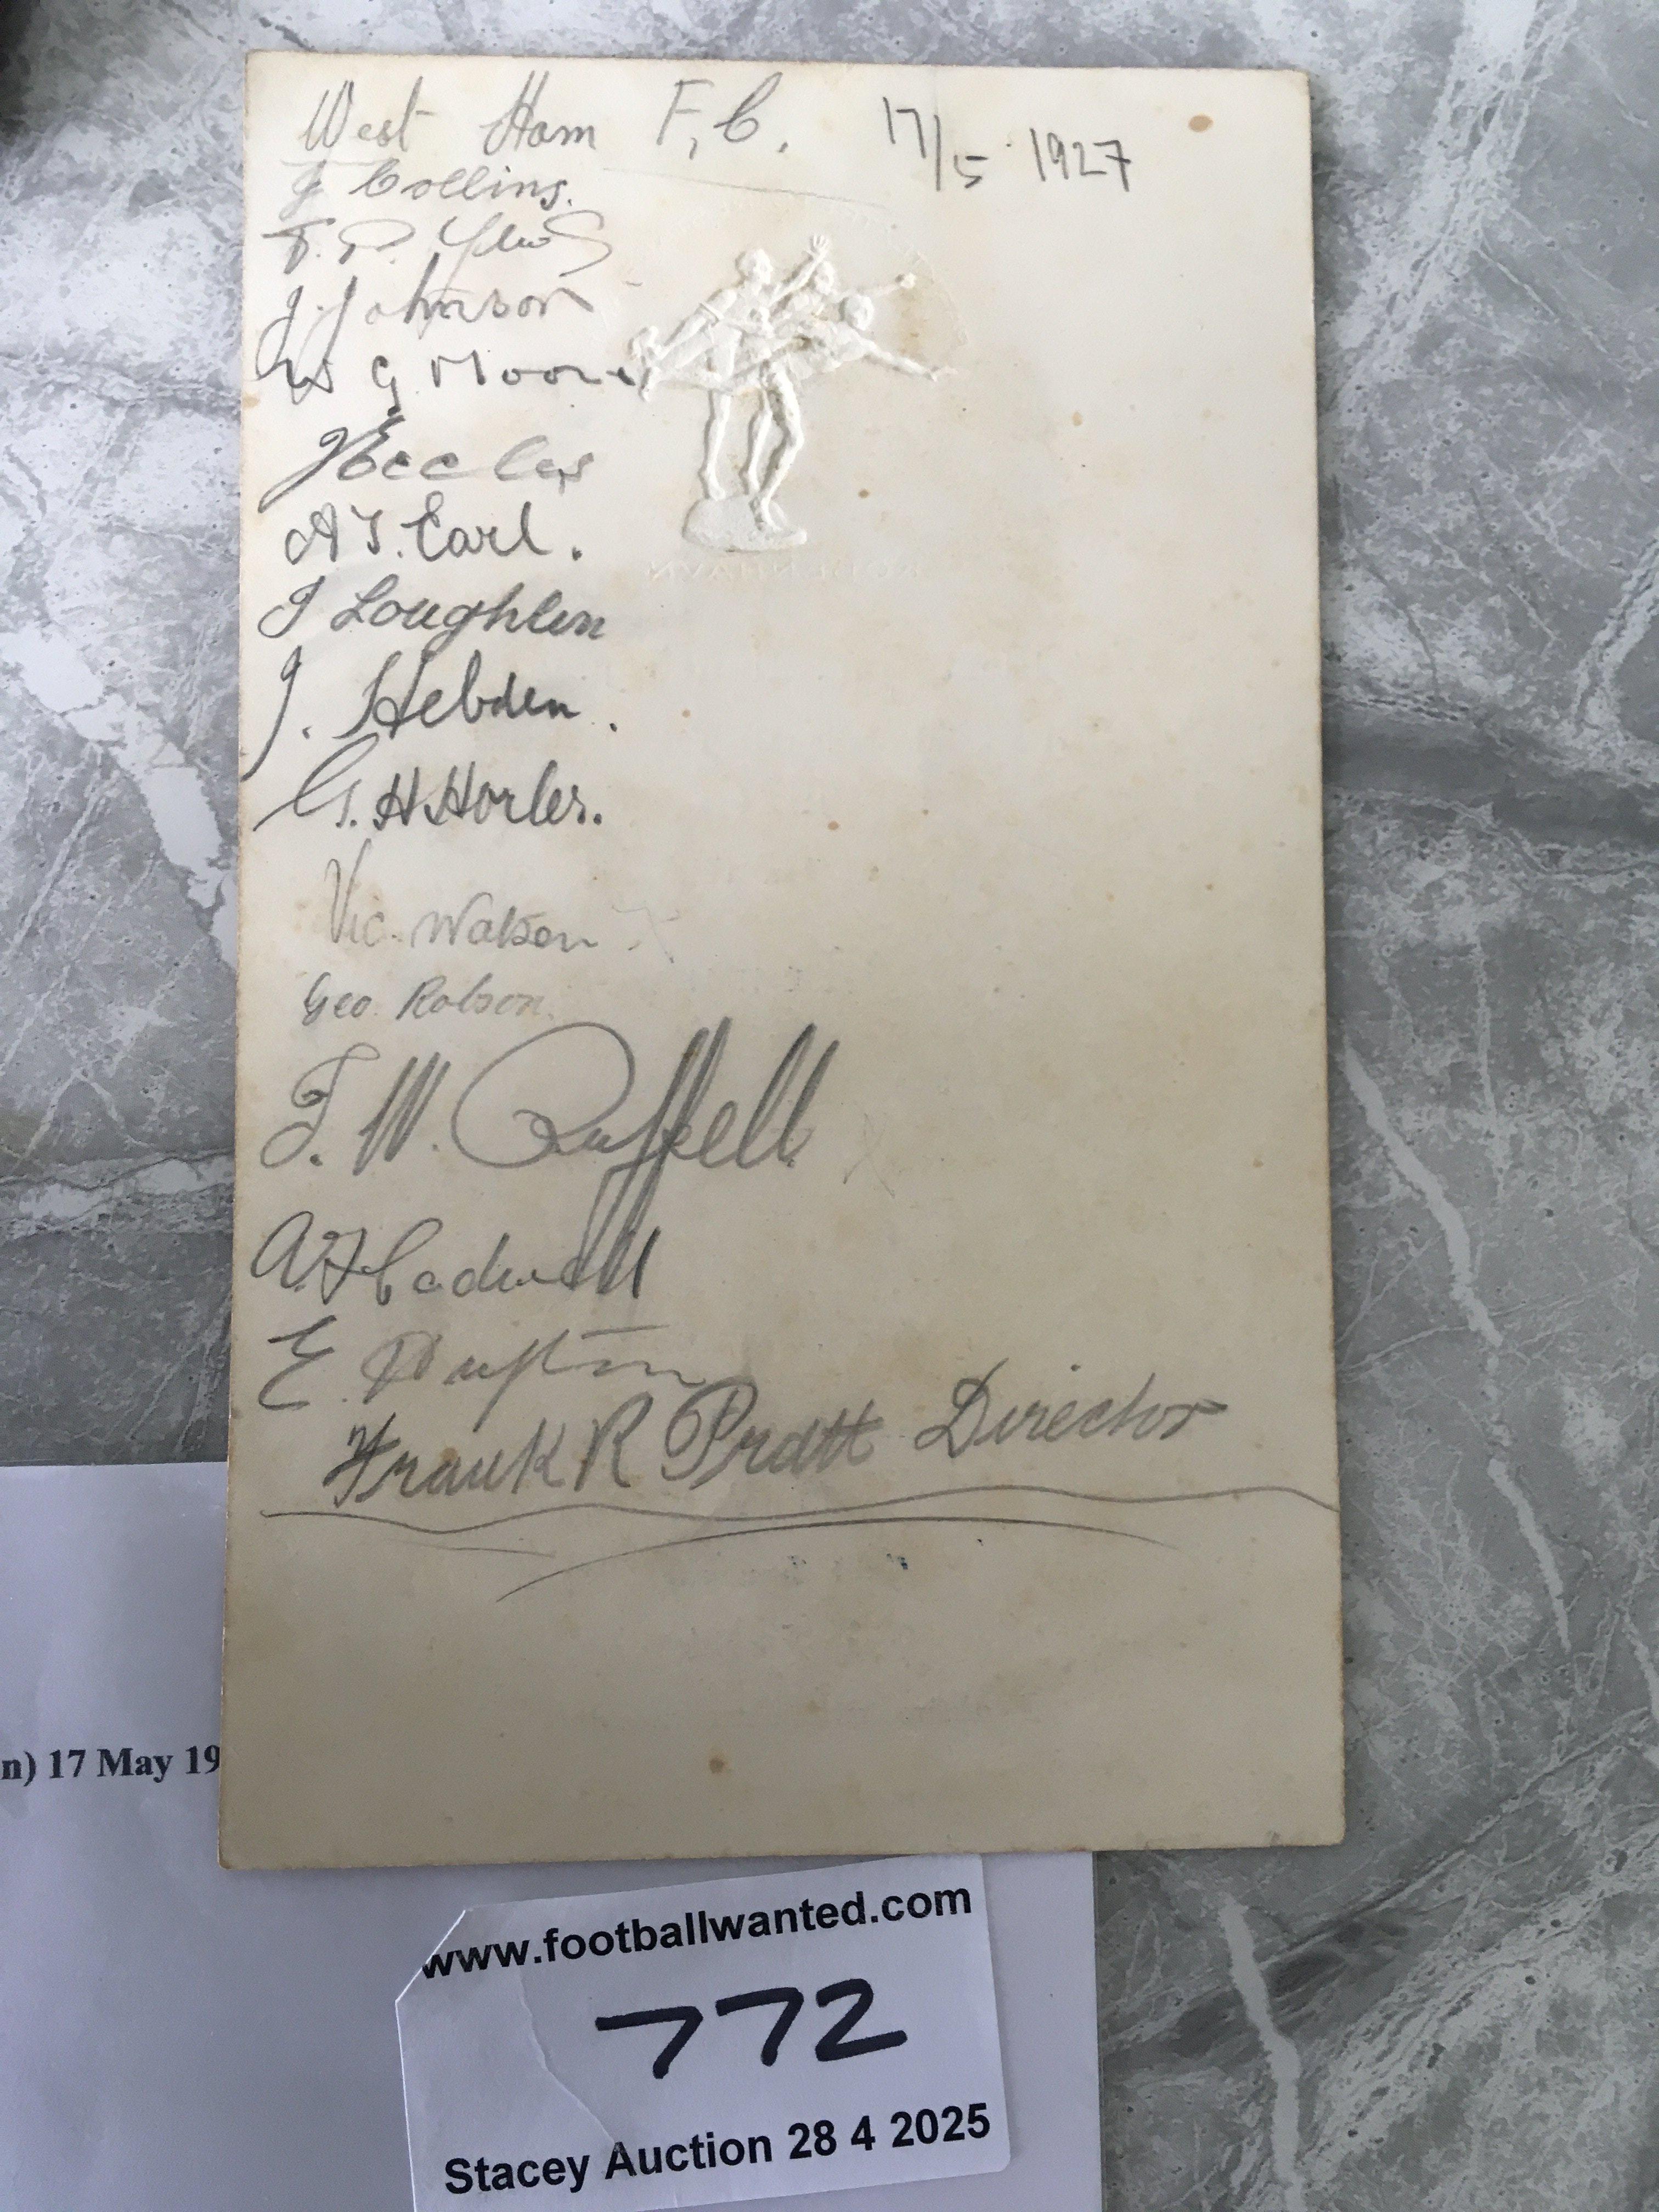 West Ham F,C. 17/5 1927
J Collins.
T. P. Yews
J. Johnson
W G Moore
J Eccles
A T. Earl.
J Loughlin
J. Hebden.
G. H Horler.
Vic. Watson
Geo. Robson.
J. W. Ruffell
A F Cadwell
E.
Frank R Pratt Director
n) 17 May 19
www.footballwanted.com
772
Stacey Auction 28 4 2025